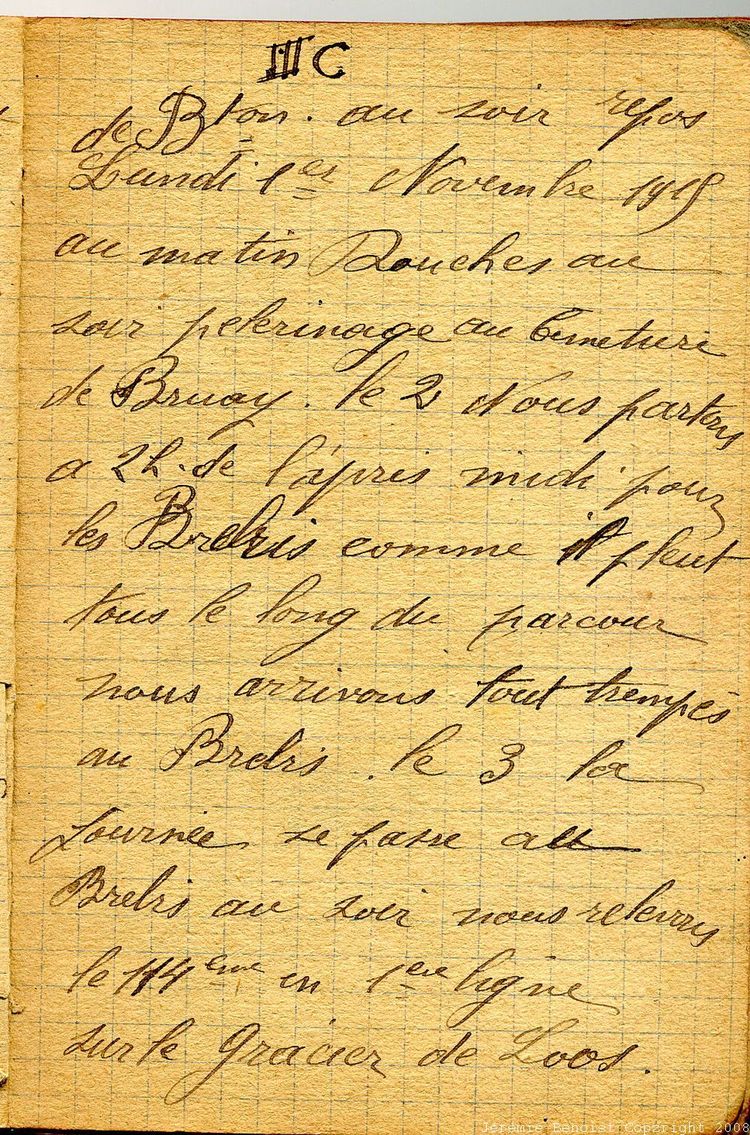 IIII C
de Bton. au soir repos
Lundi 1er Novembre 1915
au matin Douches au
soir pelerinage au Cimetiere
de Bruay. le 2 Nous partons
a 2h. de l'apres midi pour
les Brebis comme il pleut
tous le long du parcour
nous arrivons tout trempés
au Brebis. le 3 la
Journée se passe aux
Brebis au soir nous relevons
le 114eme en 1ere ligne
sur le Gracier de Loos.
Jérémie Benoist Copyright 2008